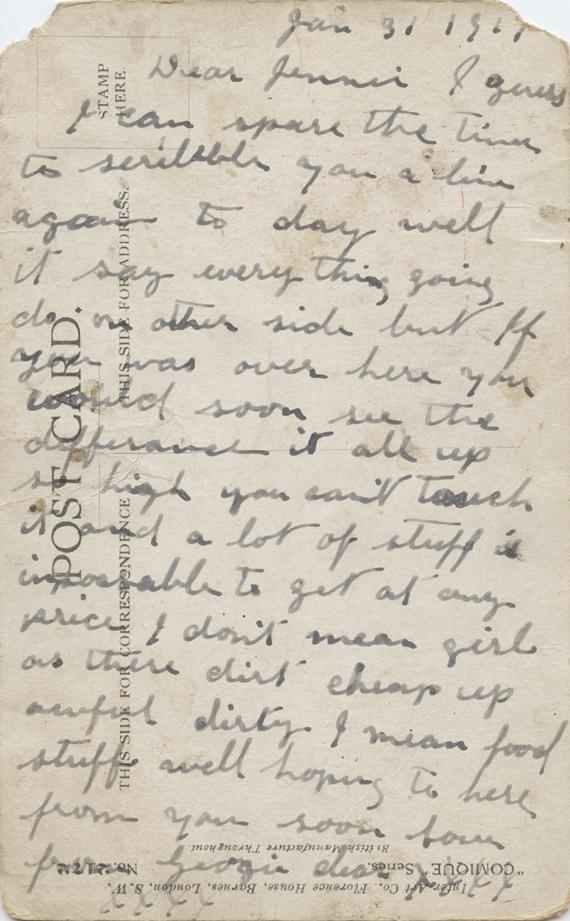 Jan 31 191
Dear Jennie I guess
I can spare the time
to scribbble you a line
again to day well
it say every thing going
do on other side but If
you was over here you
would soon see the
differance it all up
so high you can't touch
it and a lot of stuff is
impossable to get at any
price I don't mean girl
as there dirt cheap up
awful dirty I mean food
stuff well hoping to here
from you soon
from Georgie dear XXXX
XXXX
STAMP
HERE.
POST CARD.
THIS SIDE FOR CORRESPONDENCE
THIS SIDE FOR ADDRESS.
"COMIQUE" Series.
Inter-Art Co. Florence House, Barnes, London, S.W.
British Manufacture Throughout